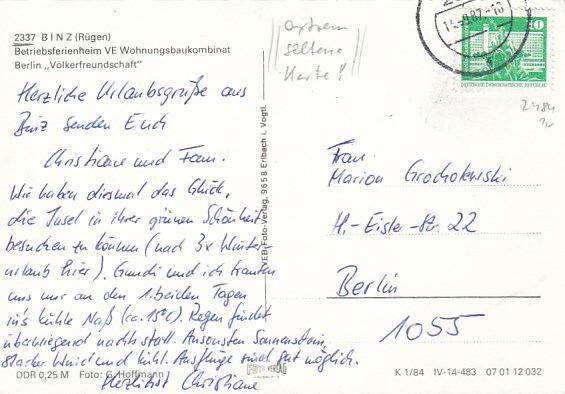 2337 B I N Z (Rügen)
Betriebsferienheim VE Wohnungsbaukombinat
Berlin „Völkerfreundschaft"
extrem
seltene
Karte!
14.-9.87.-18
10
DEUTSCHE DEMOKRATISCHE REPUBLIK
2484
Herzliche Urlaubsgrüße aus
Binz senden Euch
Christiane und Fam.
Wir haben diesmal das Glück,
die Insel in ihrer grünen Schönheit
besuchen zu können (nach 3x Winter-
urlaub hier). Gundi und ich trauten
uns nur an den 1. beiden Tagen
in's kühle Naß (ca. 15°C). Regen findet
überwiegend nachts statt. Ansonsten Sonnenschein,
starker Wind und kühl. Ausflüge sind gut möglich.
Herzlichst Christiane
VEB-Foto-Verlag, 9658 Erlbach i. Vogtl.
Frau
Marion Grocholewski
H.-Eisler-Str. 22
Berlin
1055
DDR 0,25 M Foto: G. Hoffmann
FOTO VERLAG
K 1/84 IV-14-483 07 01 12 032